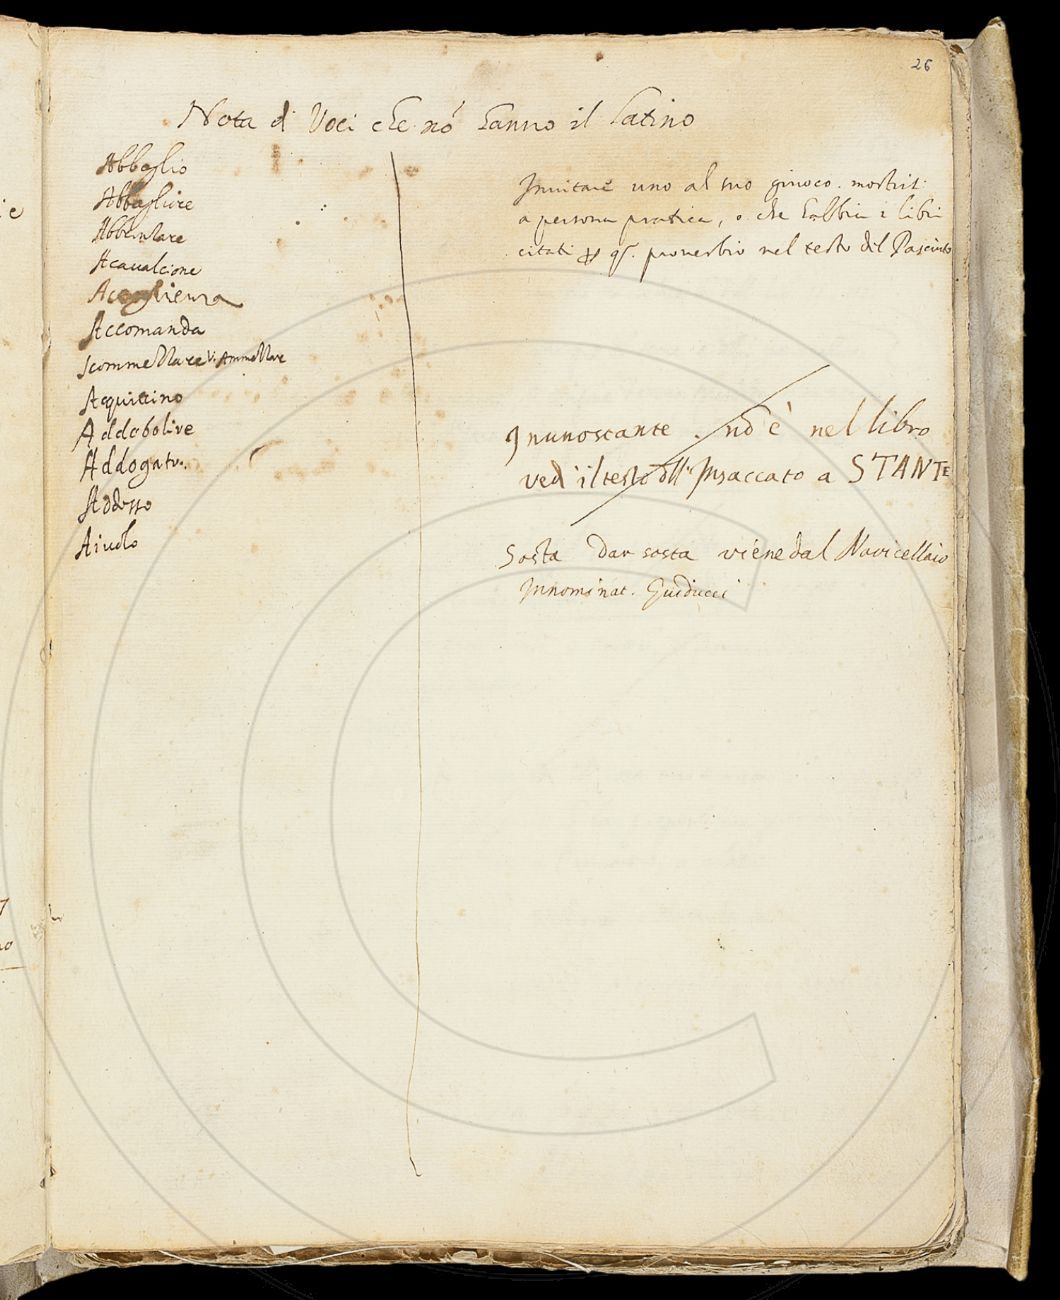 26
Nota di Voci che nō hanno il latino
Abbaglio
Abbagliore
Acavalcione
Accoglienza
Accomanda
Scommettere V. Ammettere
Acquitrino
Addobolire
Addogato.
Addosso
Aiuolo
Invitare uno al suo giuoco. mostrisi
a persona pratica, o che habbia i libri
citati qr. proverbio nel testo del Pasciuto
Innnoscante . nō è nel libro
ved il testo dll' Insaccato a STANTE
Sosta Dar sosta viene dal Navicellaio
Innominat. Guiducci